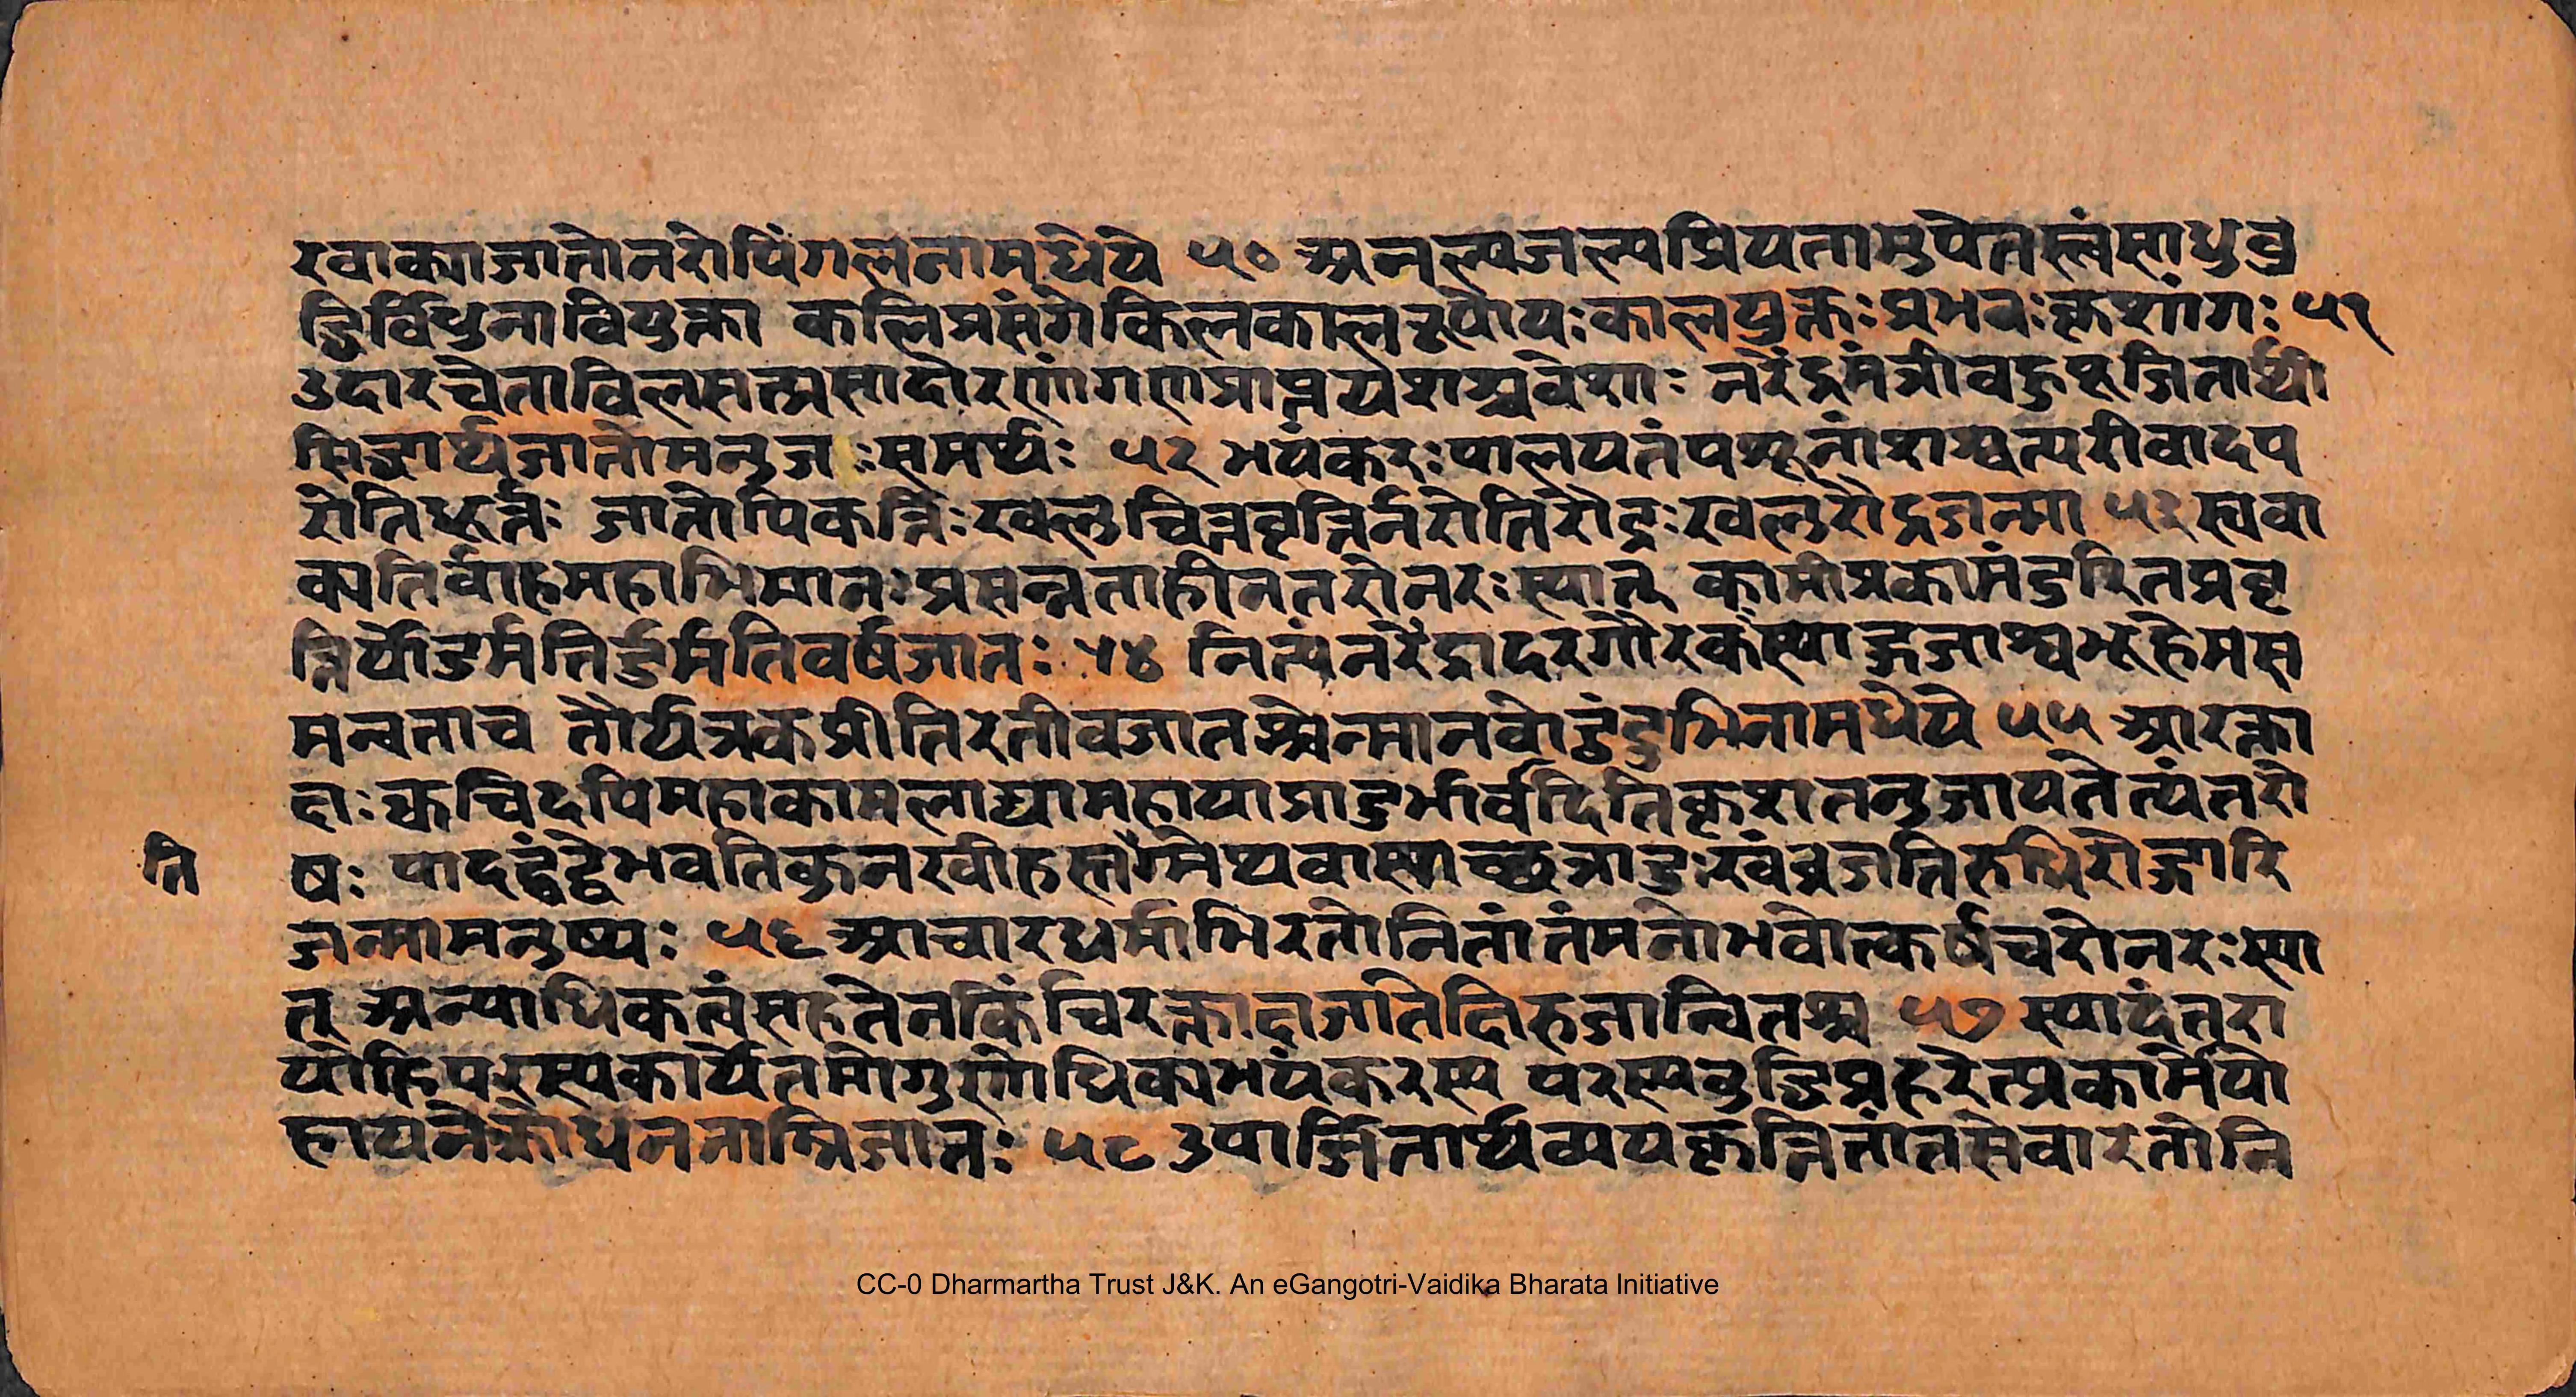 रवाक्याजातोनरोपिंगलनामधेये ५० अनल्पजल्पप्रियतामुपेतस्त्वंसाधुबु
द्धिर्विधुनावियुक्ता कलिप्रसंगेकिलकालरूपोयःकालयुक्तःप्रभवःकृशांगः ५१
उदारचेताविलसत्प्रसादोरणांगणप्राप्तयशश्चवेशाः नरेंद्रमंत्रीवहुपूजितार्थी
सिद्धार्थजातोमनुजःसमर्थः ५२ भयंकरःपालयतंपशूनांशश्वत्परीवादप
रोतिधूर्त्तः जातोपिकर्त्तिःखलुचित्तवृत्तिर्नरोतिरौद्रःखलुरौद्रजन्मा ५३ स्ववा
क्यतिर्वाहमहाभिमानःप्रसन्नताहीनतरोनरःस्यात् कामीप्रकामंदुरितप्रवृ
त्तिर्योदुर्मतिर्दुर्मतिवर्षजातः ५४ नित्यंनरेंद्रादरगौरकंस्याद्गजाश्वभूहेमस
मन्वताच तौर्यत्रकप्रीतिरतीवजातश्चेन्मानवोदुंदुभिनामधेये ५५ आरक्ता
क्षःक्वचिदपिमहाकामलाद्यामहायाप्रादुर्भार्वदितिकृशतनुजायतेत्यंतरो
ति
षः पादद्वंद्वेभवतिकुनखीहस्तैर्ग्मेप्यवास्याच्छस्त्राद्दुःखंव्रजतिरुधिरोद्गारि
जन्मामनुष्यः ५६ आचारधर्माभिरतोनितांतंमनोभवोत्कर्षचरोनरःस्या
त् अन्याधिकत्वंसहतेनकिंचिरक्ताक्षजातेक्षिरुजान्वितश्च ५७ स्यादंतरा
योहिपरस्यकार्येतमोगुणोधिक्यभयंकरस्य परस्यबुद्धिप्रहरेत्प्रकामंयो
हायनेक्रोधननाम्निजातः ५८ उपार्जितार्थव्ययकृन्नितांतसेवारतोनि
CC-0 Dharmartha Trust J&K. An eGangotri-Vaidika Bharata Initiative